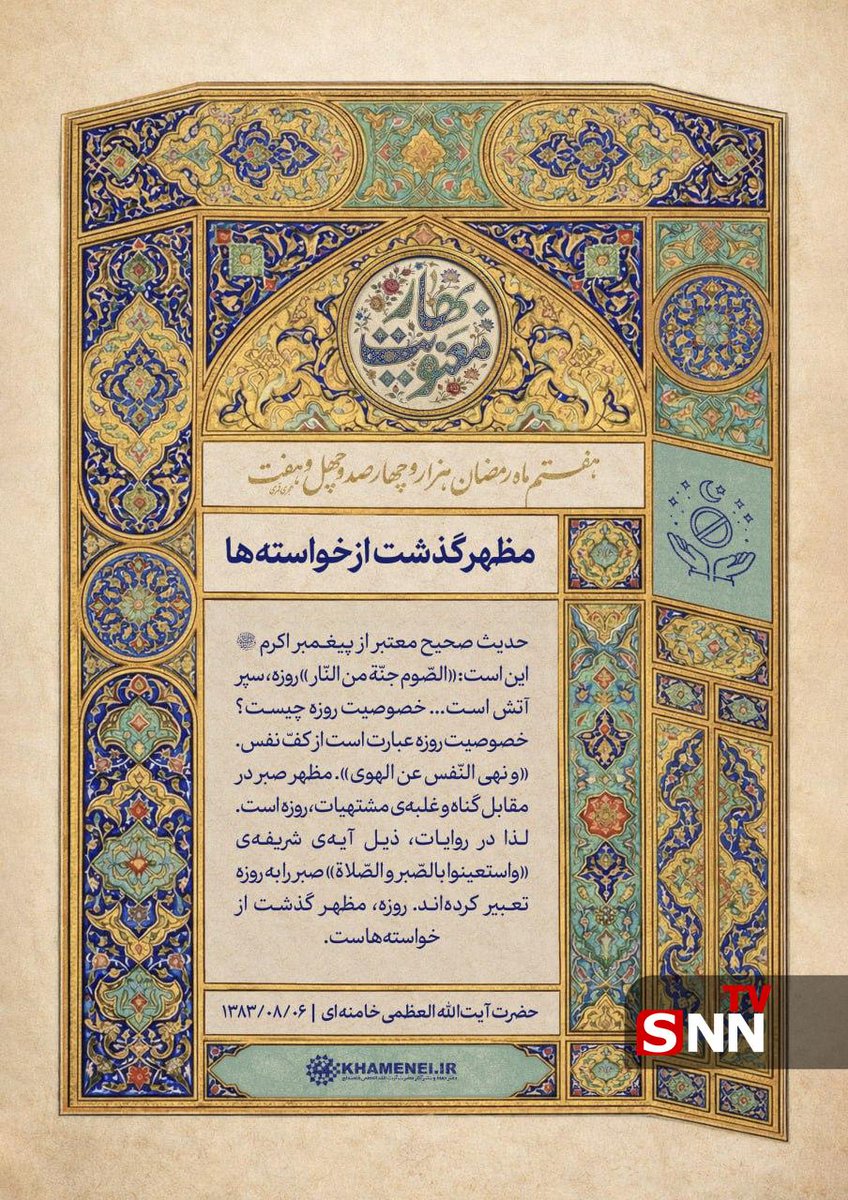 بهار
معنویت
هفتم ماه رمضان هزار و چهارصد و چهل و هفت
هجری قمری
مظهر گذشت از خواسته‌ها
حدیث صحیح معتبر از پیغمبر اکرم ﷺ
این است: «الصّوم جنّة من النّار» روزه، سپر
آتش است... خصوصیت روزه چیست؟
خصوصیت روزه عبارت است از کفّ نفس.
«و نهی النّفس عن الهوی». مظهر صبر در
مقابل گناه و غلبه‌ی مشتهیات، روزه است.
لذا در روایات، ذیل آیه‌ی شریفه‌ی
«واستعینوا بالصّبر و الصّلاة» صبر را به روزه
تعبیر کرده‌اند. روزه، مظهر گذشت از
خواسته‌هاست.
حضرت آیت‌الله العظمی خامنه‌ای | ۱۳۸۳/۰۸/۰۶
KHAMENEI.IR
SNN TV